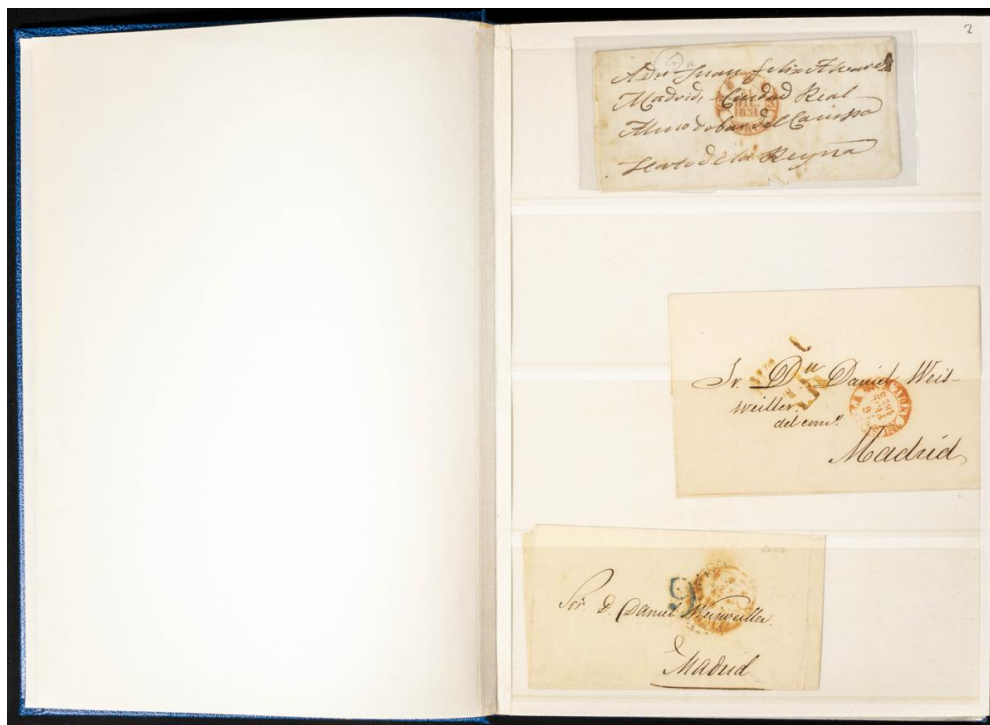 2
A Dn Juan Felix Alvarez
Madrid, Ciudad Real
Almodobar del Campo
de la Reyna
1851
Sr. Dn Daniel Weis-
weiller.
del comº.
Madrid
Sor. D. Daniel Weisweiller.
Madrid.